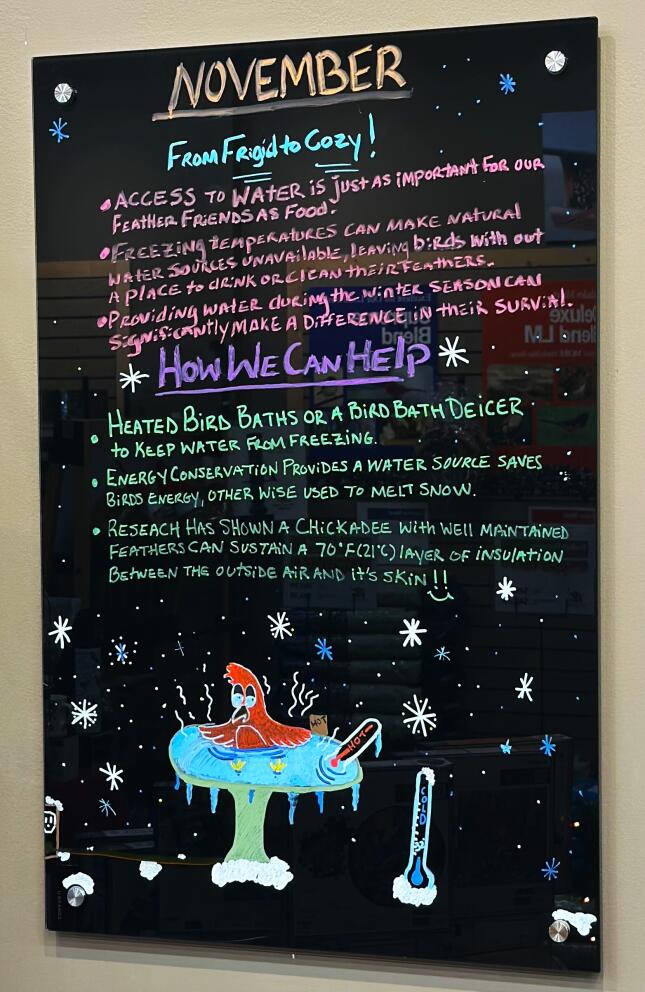 NOVEMBER
From Frigid to Cozy!
• ACCESS TO WATER IS JUST AS IMPORTANT FOR OUR
FEATHER FRIENDS AS FOOD.
• FREEZING TEMPERATURES CAN MAKE NATURAL
WATER SOURCES UNAVAILABLE, LEAVING birds with out
A PLACE to DRINK OR CLEAN their FEATHERS.
• PROVIDING WATER during the WINTER SEASON CAN
Significantly MAKE A DIFFERENCE IN their SURVIAL.
HOW WE CAN HELP
• HEATED BIRD BATHS OR A BIRD BATH DEICER
to KEEP WATER FROM FREEZING.
• ENERGY CONSERVATION PROVIDES A WATER SOURCE SAVES
BIRDS ENERGY, OTHER WISE USED TO MELT SNOW.
• RESEACH HAS SHOWN A CHICKADEE WITH WELL MAINTAINED
FEATHERS CAN SUSTAIN A 70°F(21°C) LAYER OF INSULATION
BETWEEN THE OUTSIDE AIR AND it's SKIN!!
HOT
HOT
COLD